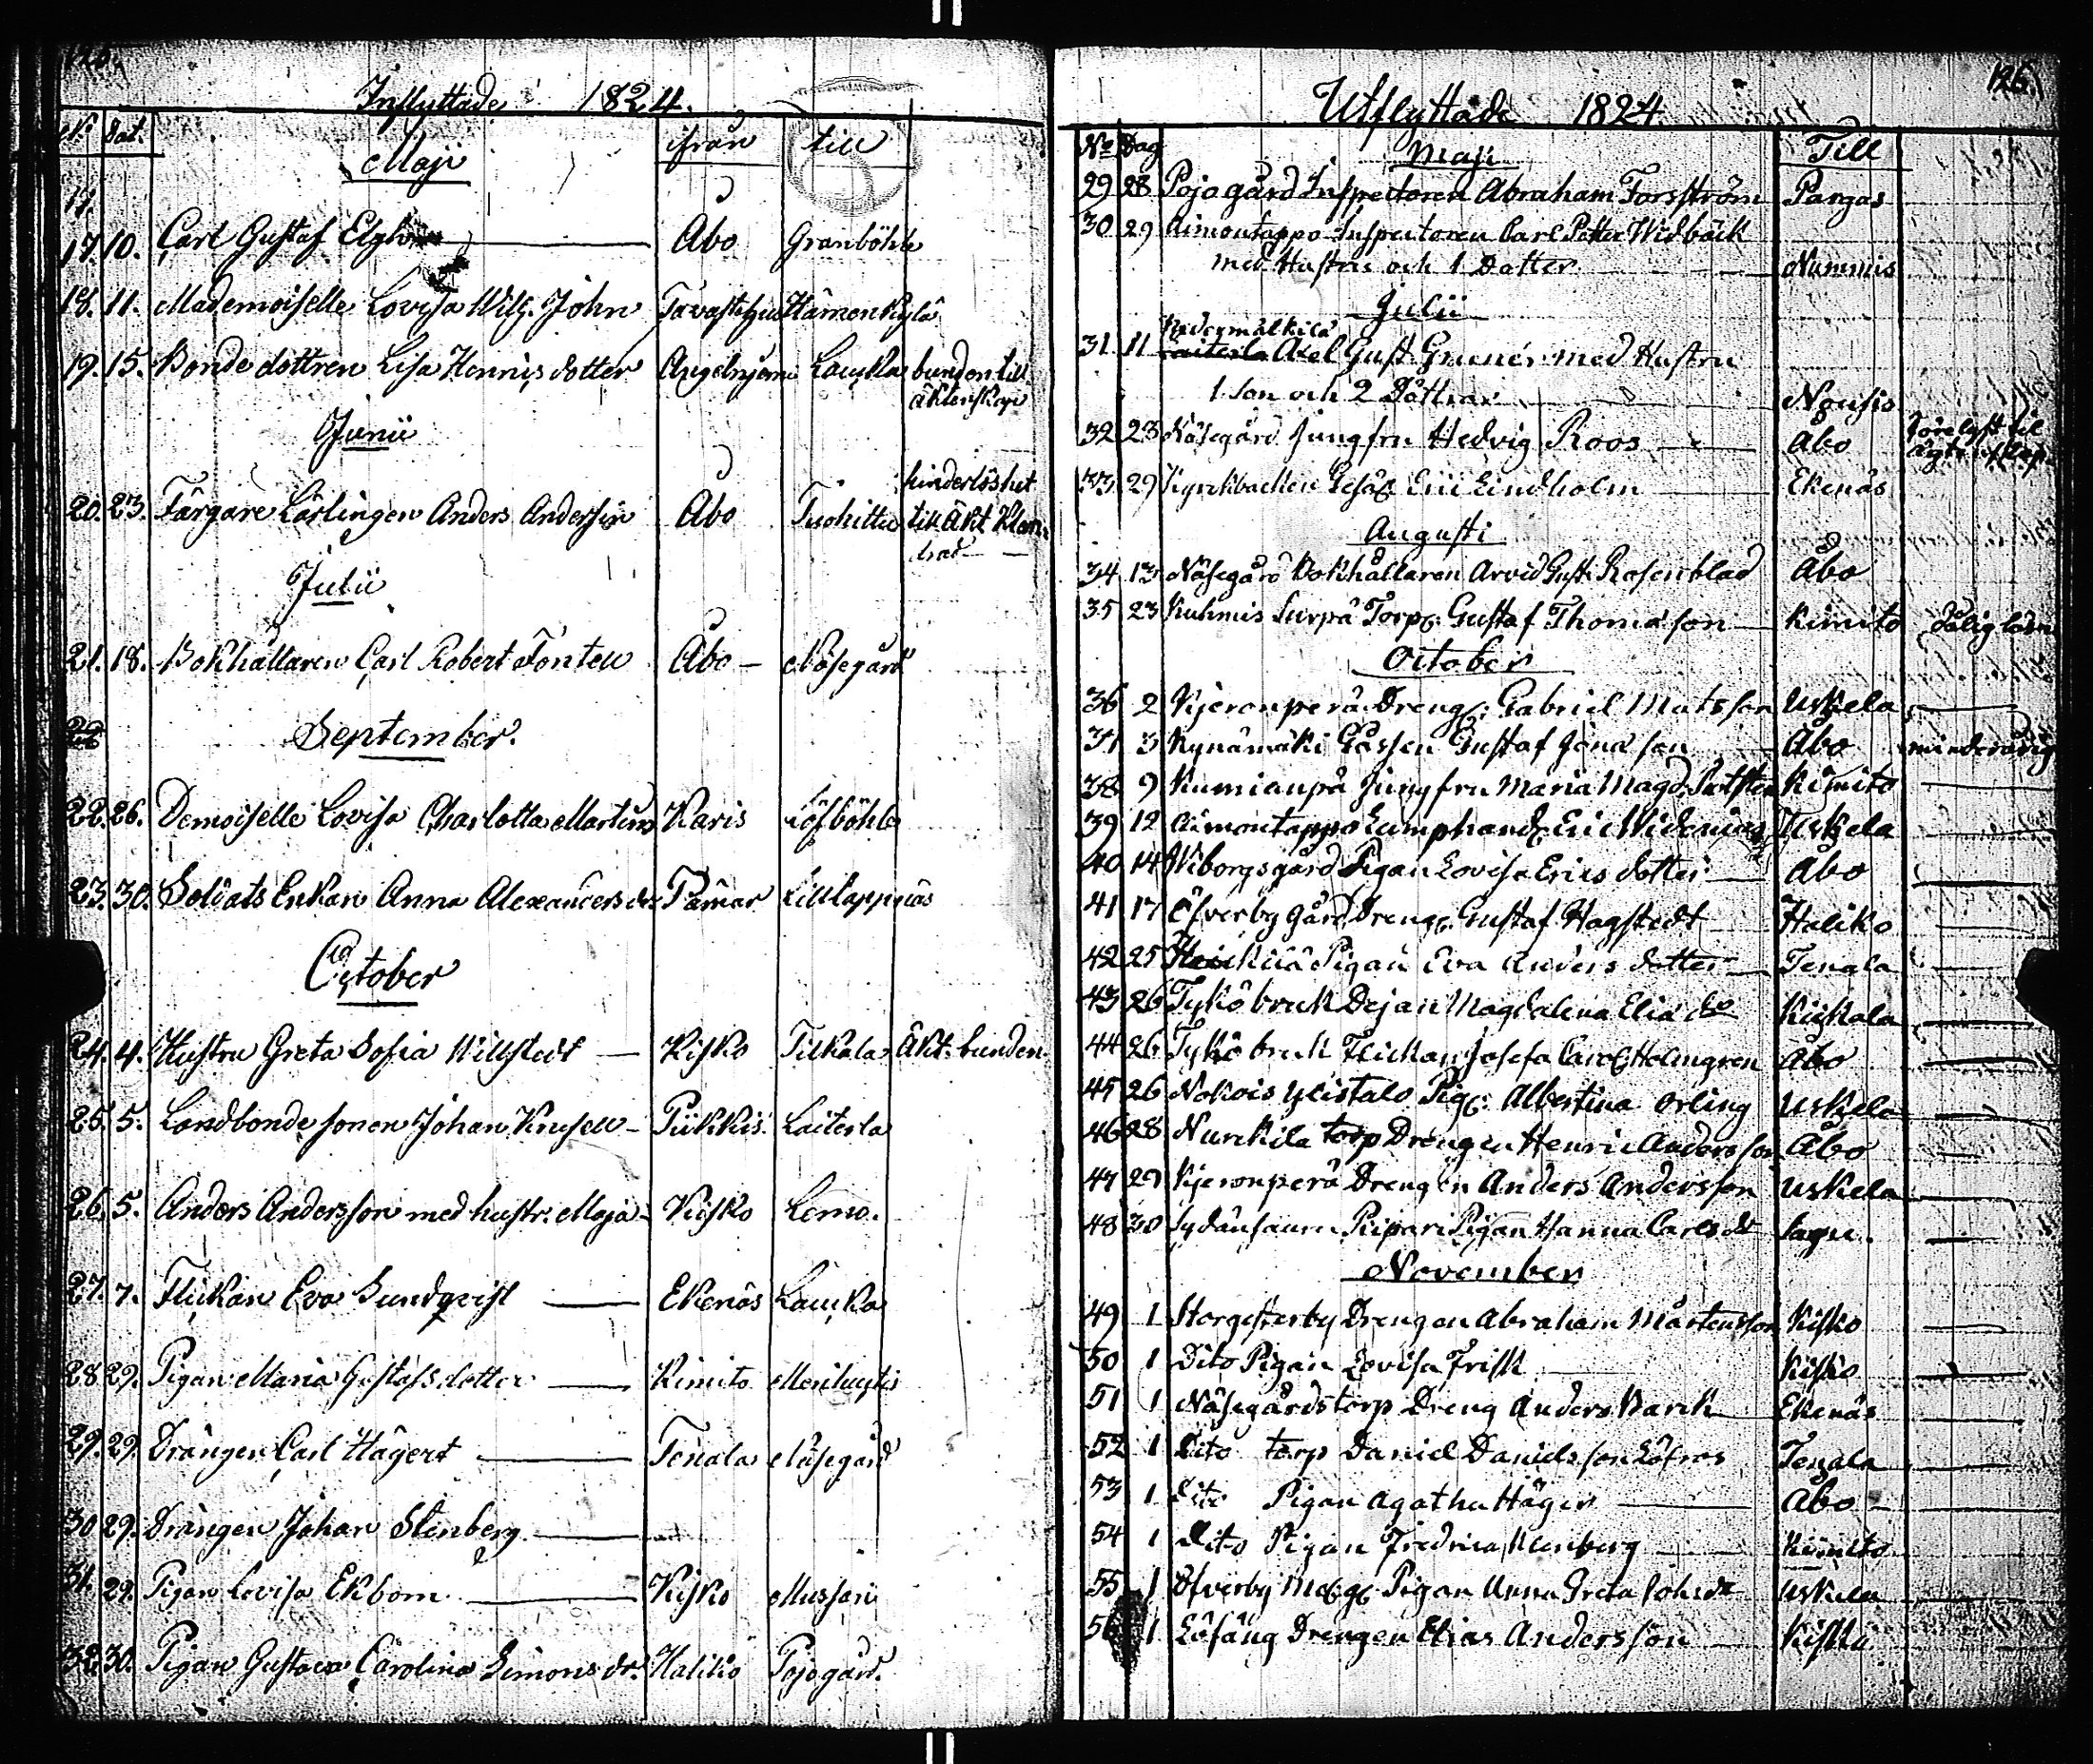 Inflyttade 1824.
No Dat. ifrån till
Maji
17. 10. Carl Gustaf Åbo Granböhle
18. 11. Mademoiselle Lovisa Wilh. John Tavastehus Hämenkylä
19. 15. Bonde dottren Lisa Henricsdotter Angelniemi Laucka bunden till
äktenskap
Junii
hinderlöshet
20. 23. Färgare Lärlingen Anders Andersin Åbo Tuohittu till Äkt.
Julii
21. 18. Bokhållaren Carl Robert Fontell Åbo – Näsegård
September.
22. 26. Demoiselle Lovisa Charlotta Martin Karis Löfböhle
23. 30. Soldats Enkan Anna Alexandersdr. Pämar Lill lappnäs
October
24. 4. Hustru Greta Sofia Willstedt — Kisko Tilkala Äkt. bunden
25. 5. Landbonde sonen Johan Knusell – Piikkis Laiterla
26. 5. Anders Andersson med hustr. Maja – Kisko Lemo.
27. 7. Flickan Eva Sundqvist — Ekenäs Laucka
28. 29. Pigan Maria Gustafsdotter — Kimito
29. 29. Drängen Carl Hägert — Tenala Näsegård
30. 29. Drängen Johan Stenberg —
31. 29. Pigan Lovisa Ekbom — Kisko Mussari
32. 30. Pigan Gustava Carolina Simonsdr. Haliko Pojogård.
126.
Utflyttade 1824
No Dag Till
Maji
29 28 Pojogård Inspectoren Abraham Forsström Pargas
30 29 Aimontappo Inspectoren Carl Petter Widbäck
med Hustru och 1 Dotter — Nummis
Julii
31 11 Axel Gust. Grenér med Hustru
1 son och 2 Döttrar — Nousis
32 23 Näsegård Jungfru Hedvig Roos — Åbo
33 29 Kyrckbacken Gesäl Eric Lindholm — Ekenäs
Augusti
34 13 Näsegård Bokhållaren Arvid Gust. Rosenblad Åbo
35 23 Kuhmis Torp. Gustaf Thomasson — Kimito dålig läsn
October
36 2 Kjeronperä Dreng. Gabriel Matsson Uskela —
37 3 Kynämäki Gåssen Gustaf Jonasson Åbo minderårig
38 9 Jungfru Maria Magd. Kimito —
39 12 Aimontappo Lumphandl. Eric Uskela —
40 14 Wiborgsgård Pigan Lovisa Ericsdotter — Åbo —
41 17 Öfverby gård Dreng. Gustaf Hagstedt Haliko —
42 25 Pigan Eva Andersdotter — Tenala —
43 26 Tykö bruk Dejan Magdalena Elia dr Kiikala —
44 26 Tykö bruk Flickan Josefa Carol. Holmgren Åbo —
45 26 Nokois Ylistalo Pig. Albertina Orling Uskela —
46 28 Nurckila torp Drengen Henric Andersson Åbo —
47 29 Kjeronperä Drengen Anders Andersson Uskela —
48 30 Pigan Hanna Carlsdr Sagu. —
November
49 1 Storgesterby Drengen Abraham Mårtensson Kisko —
50 1 Dito Pigan Lovisa Frisk — Kisko —
51 1 Näsegårds torp Dreng Anders Barck Ekenäs —
52 1 Dito torp Daniel Danielsson Löfros Tenala —
53 1 Dito Pigan Agatha Häger — Åbo —
54 1 Dito Pigan Fredrica — Kimito —
55 1 Öfverby Pigan Anna Greta Johsdr Uskela
56 1 Löfäng Drengen Elias Andersson — Kisko